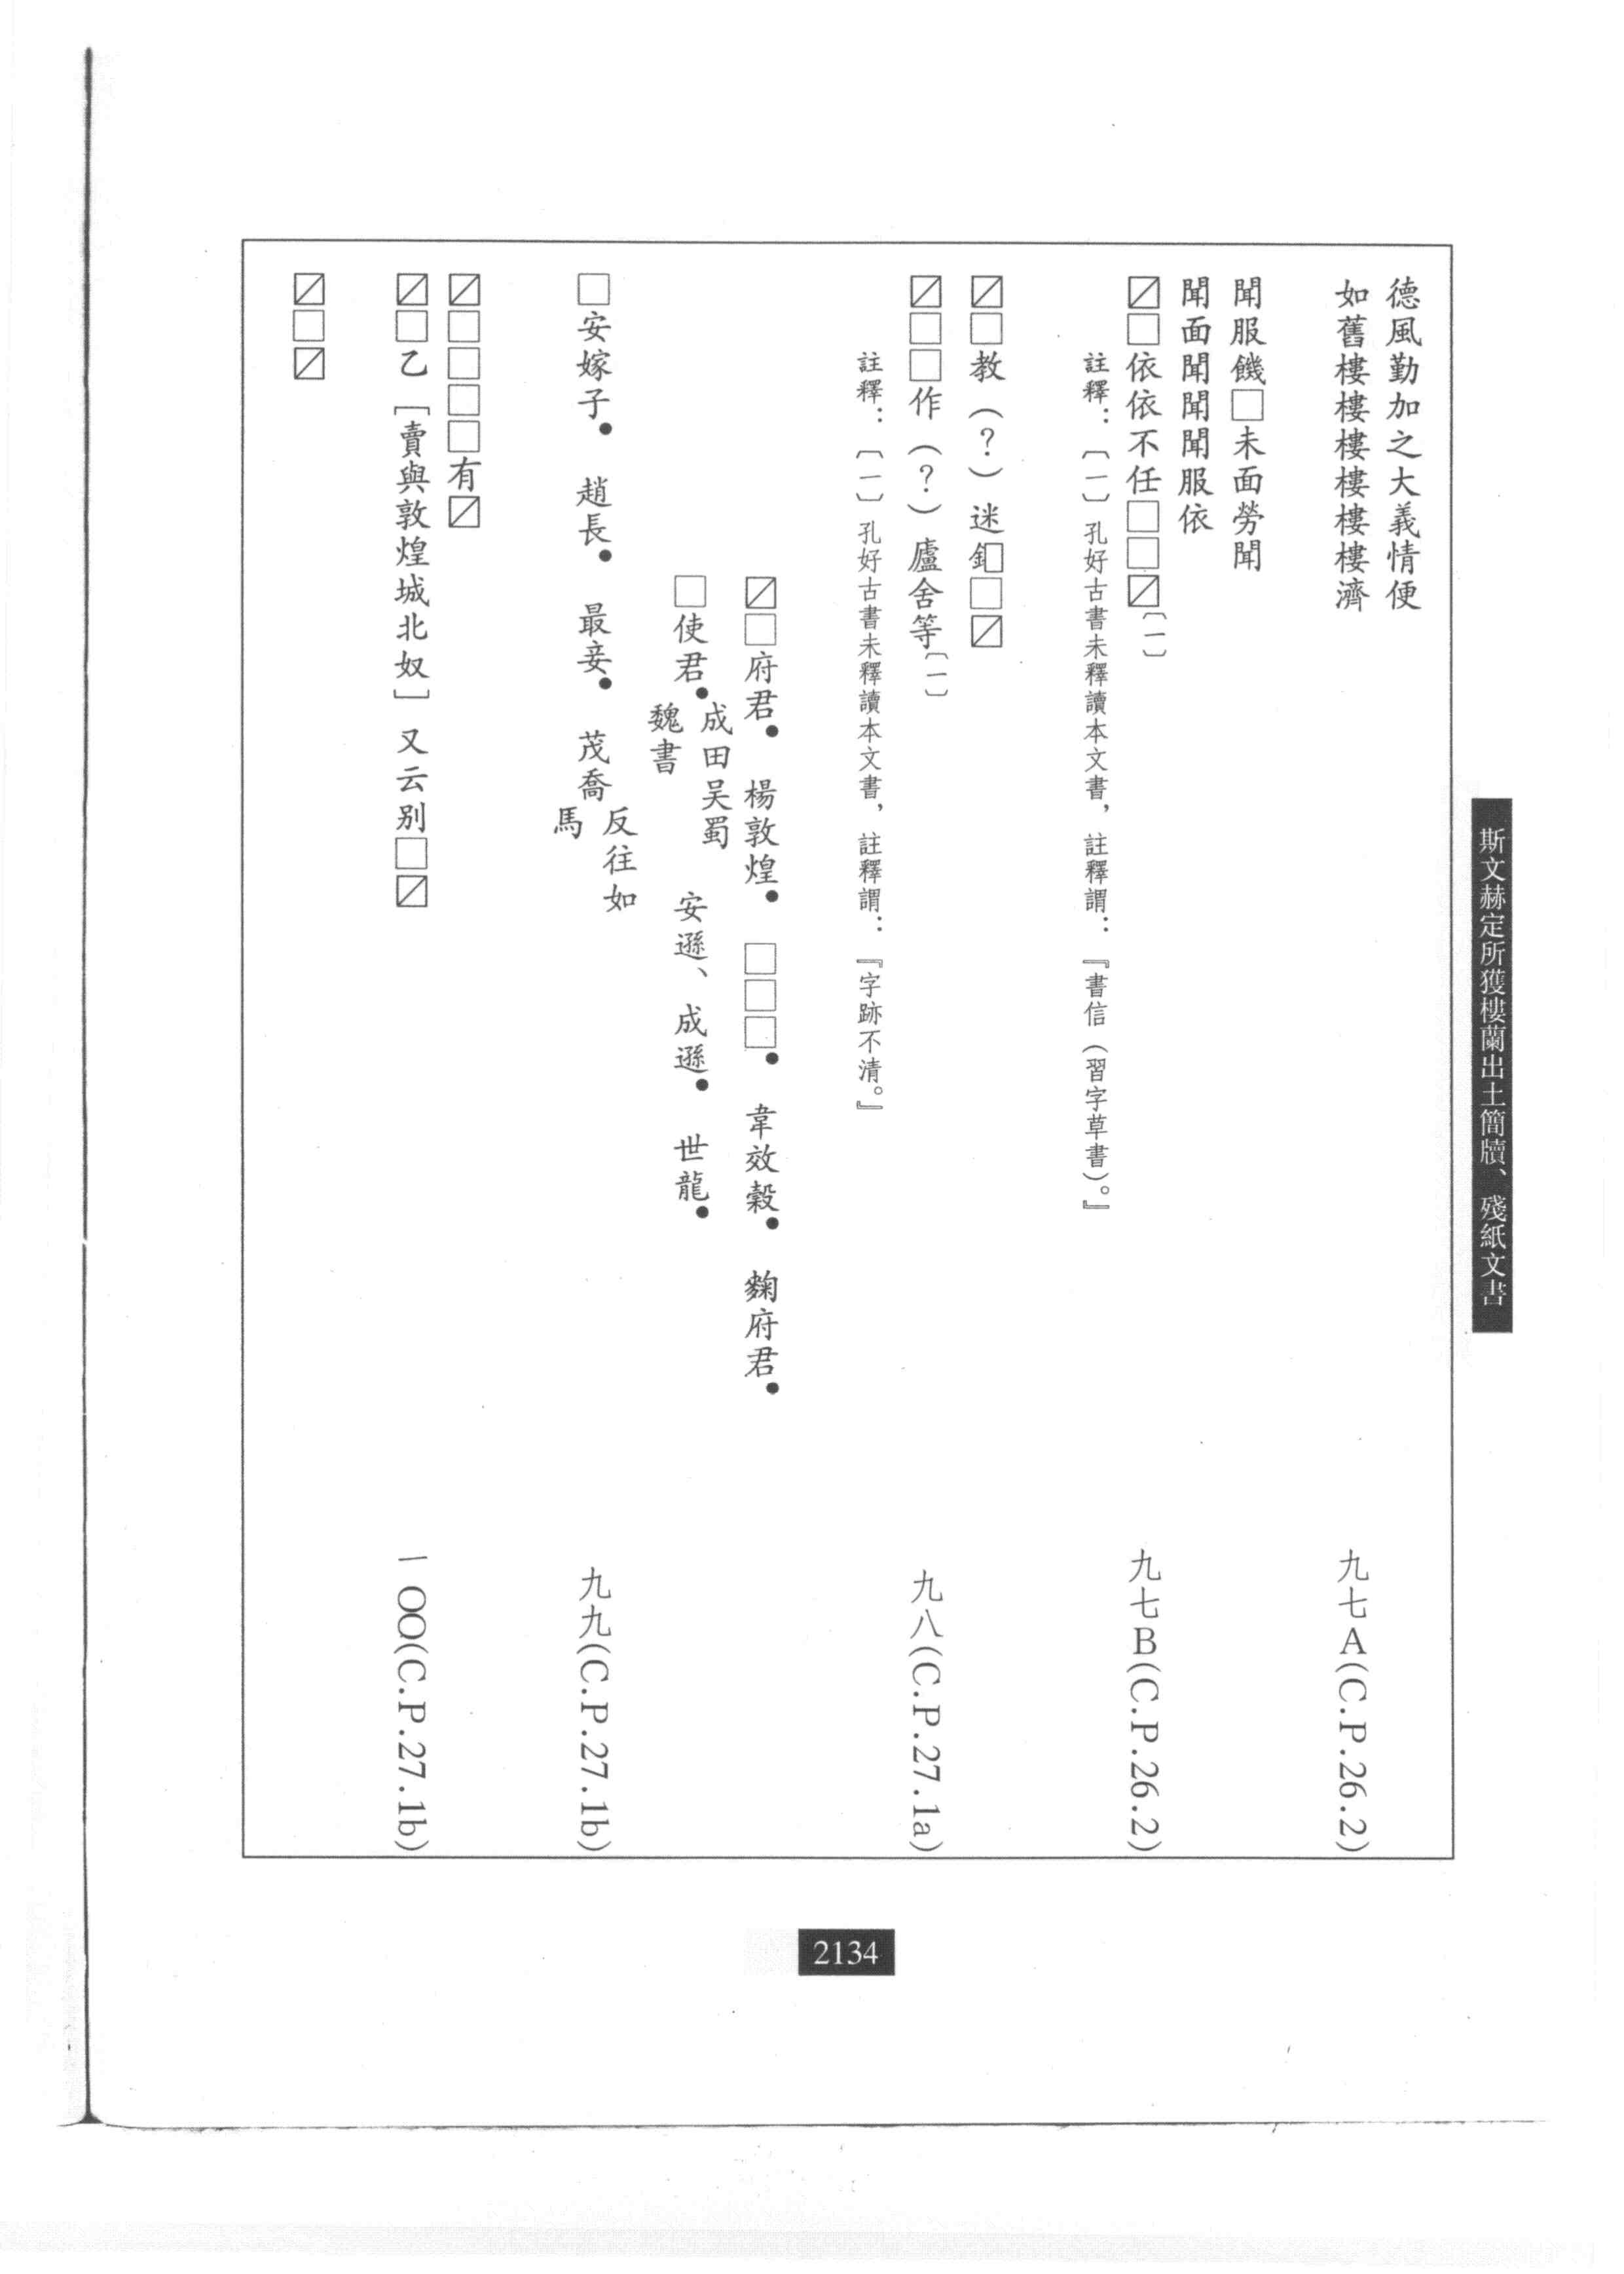 斯文赫定所獲樓蘭出土簡牘、殘紙文書
德風勤加之大義情便
如舊樓樓樓樓樓樓濟
九七A(C.P.26.2)
聞服饑□未面勞聞
聞面聞聞聞服依
☑□依依不任□□☑〔一〕
九七B(C.P.26.2)
註釋：〔一〕孔好古書未釋讀本文書，註釋謂：『書信（習字草書）。』
☑□教（？）迷釦□☑
☑□□作（？）廬舍等〔一〕
九八(C.P.27.1a)
註釋：〔一〕孔好古書未釋讀本文書，註釋謂：『字跡不清。』
☑□府君• 楊敦煌• □□□• 韋效穀• 麴府君•
□使君•
成田吴蜀
魏書
安遜、成遜• 世龍•
□安嫁子• 趙長• 最妾• 茂喬
反往如
馬
九九(C.P.27.1b)
☑□□□□有☑
☑□乙［賣與敦煌城北奴］又云别□☑
一〇〇(C.P.27.1b)
☑□☑
2134